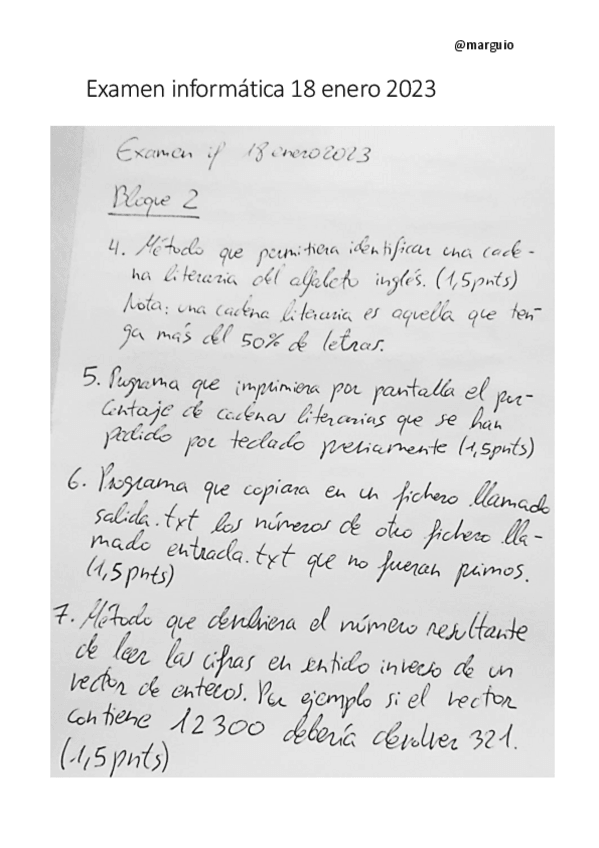 @marguio
Examen informática 18 enero 2023
Examen if 18 enero 2023
Bloque 2
4. Método que permitiera identificar una cade-
na literaria del alfabeto inglés. (1,5pnts)
Nota: una cadena literaria es aquella que ten-
ga más del 50% de letras.
5. Programa que imprimiera por pantalla el por-
centaje de cadenas literarias que se han
pedido por teclado previamente (1,5pnts)
6. Programa que copiara en un fichero llamado
salida.txt los números de otro fichero lla-
mado entrada.txt que no fueran primos.
(1,5pnts)
7. Método que devolviera el número resultante
de leer las cifras en sentido inverso de un
vector de enteros. Por ejemplo si el vector
contiene 12300 debería devolver 321.
(1,5pnts)